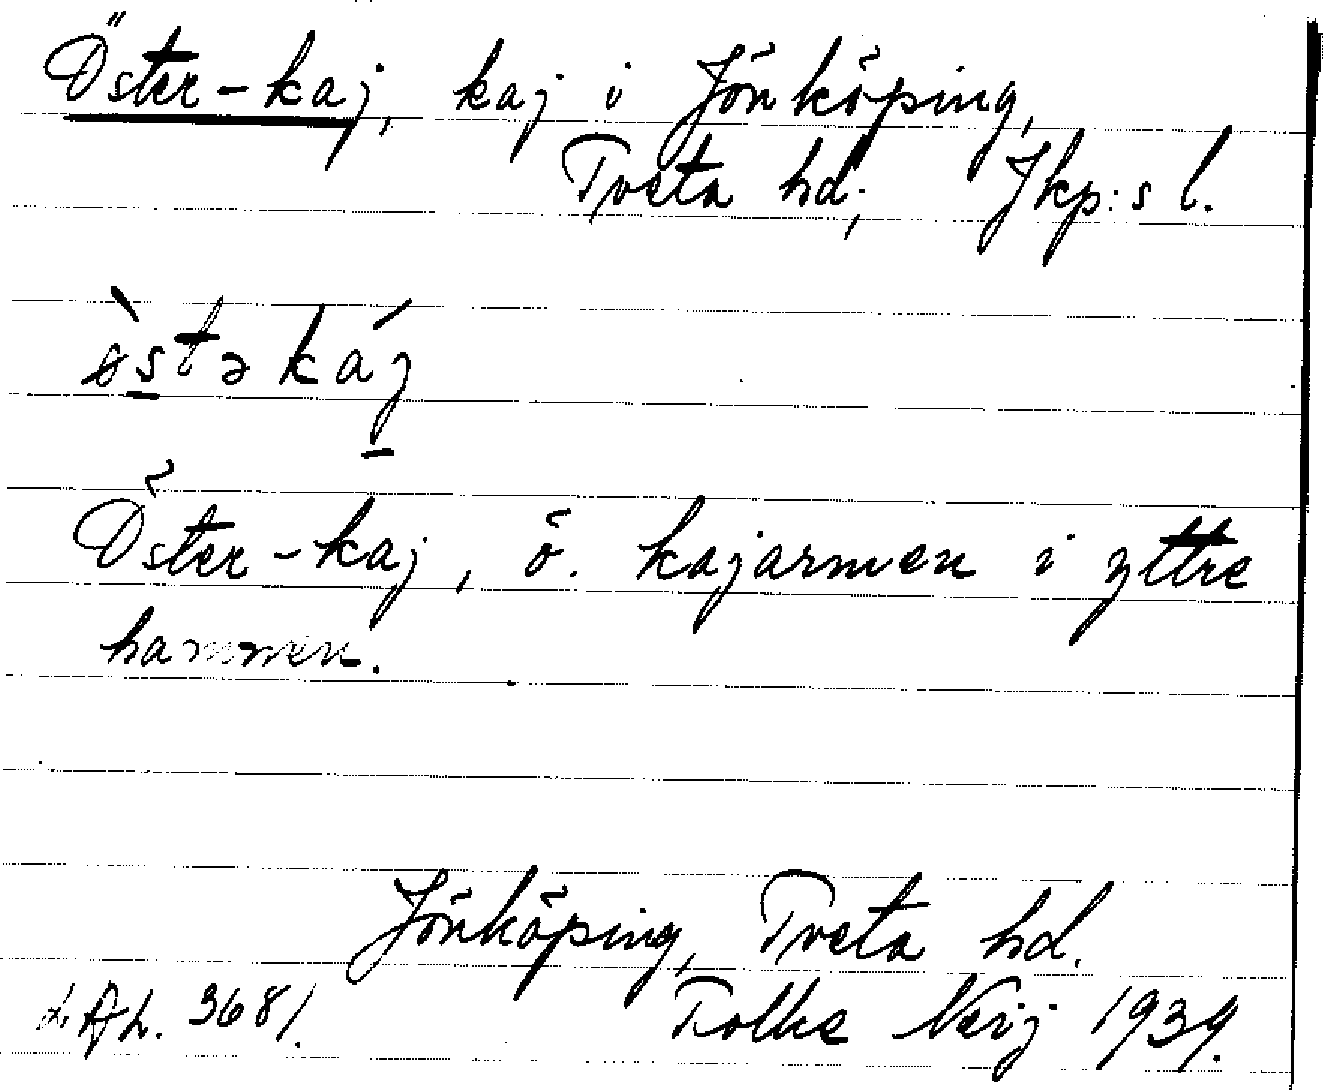 Öster-kaj, kaj i Jönköping,
Tveta hd, Jkp:s l.
ø̀stəkáj
Öster-kaj, ö. kajarmen i yttre
hamnen.
Jönköping, Tveta hd.
LAL. 3681. Folke Neij 1939.